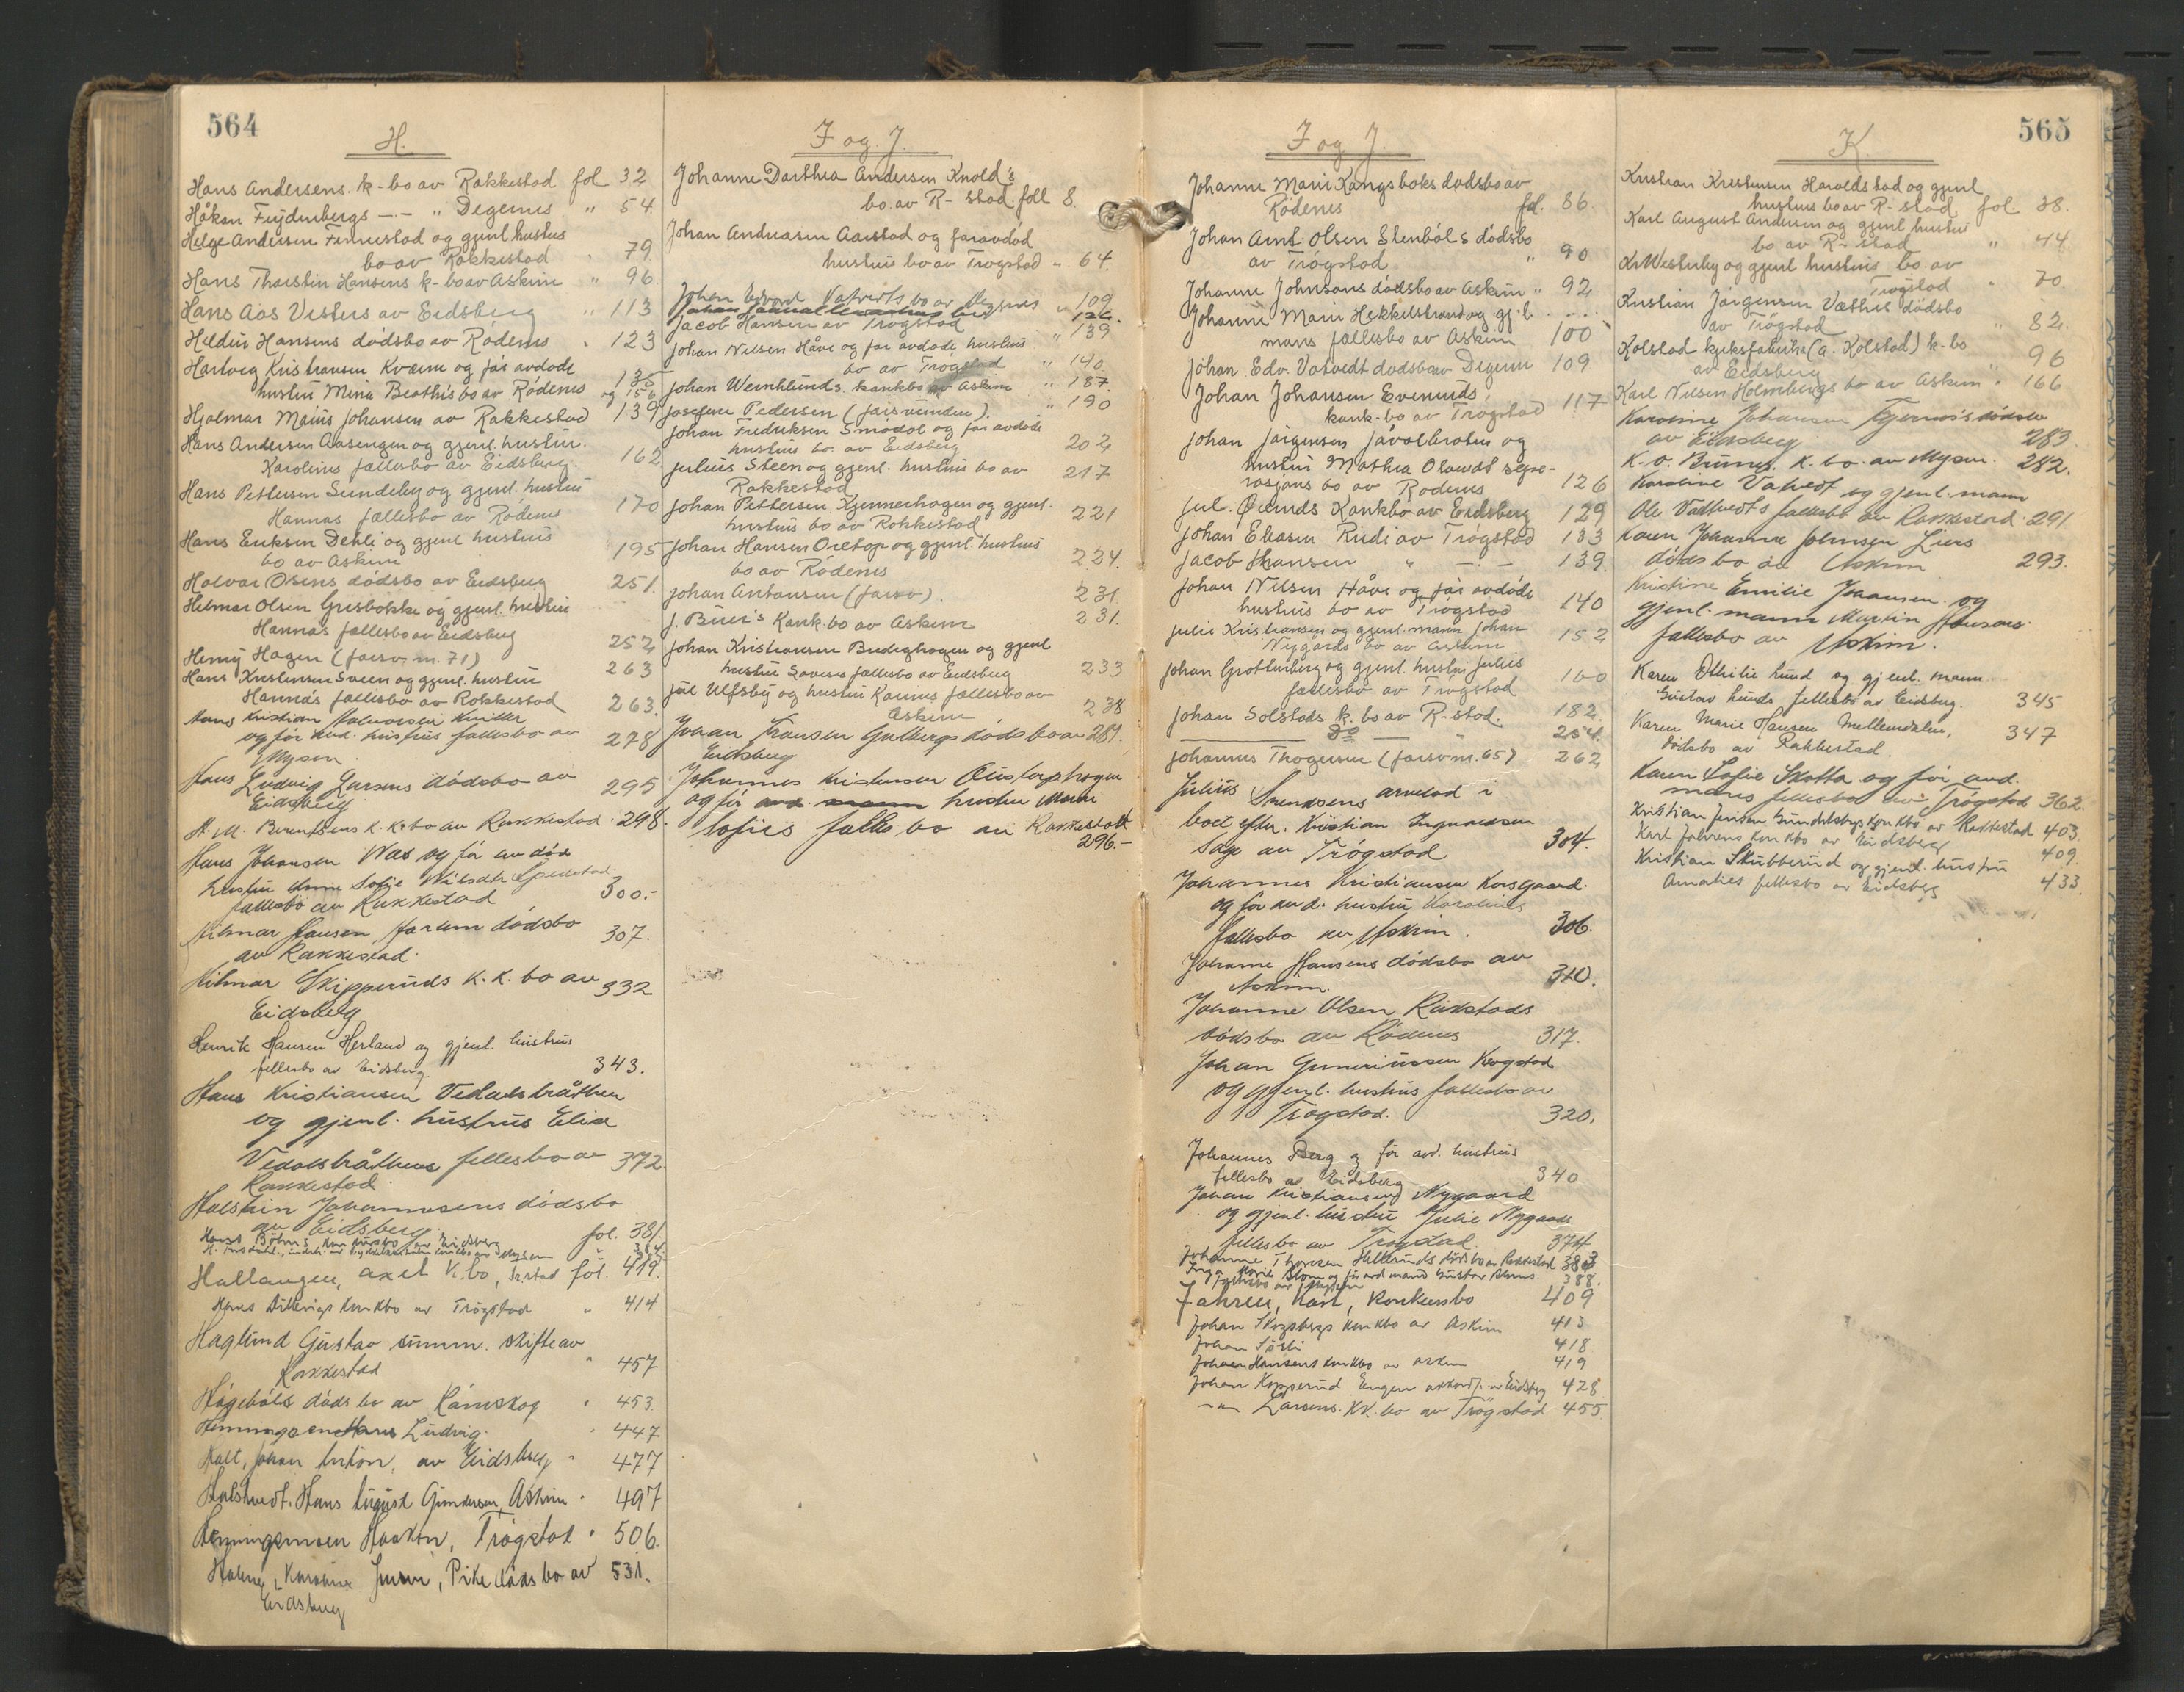 564
H.
Hans Andersens k-bo av Rakkestad fol 32
Håkon " Degernes " 54
Helge Andersen Finnestad og gjenl. hustrus
bo av Rakkestad 79
Hans Thorstein Hansens k-bo av Askim " 96
Hans Aas Vesters av Eidsberg " 113
Hansens dødsbo av Rødenes 123
Hartvig Kristiansen Kværne og før avdøde
hustru Mina Beathes bo av Rødenes 135 og 156
Hjalmar Mains Johansen av Rakkestad 139
Hans Andersen Aasengen og gjenl. hustru
Karolines fællesbo av Eidsberg. 162
Hans Pettersen Sundeby og gjenl. hustru
Hannas fællesbo av Rødenes 170
Hans Eriksen Dehli og gjenl hustrus
bo av Askim 195
Halvor Olsens dødsbo av Eidsberg 251.
Helmer Olsen Gresbakke og gjenl. hustru
Hannas fællesbo av Eidsberg 252
Henry Hagen (farsv. m. 71) 263
Hans Kristensen Sveen og gjenl. hustru
Hannas fællesbo av Rakkestad 263.
Hans Kristian Halvorsen
og før avd. hustrus fællesbo av 278
Mysen
Hans Ludvig Larsens dødsbo av 295
Eidsberg
H. M. Berentsens k.k. bo av Rakkestad. 298.
Hans Johansen Waa og før av død
hustru Anne Sofie
fællesbo av Rakkestad 300.-
Hilmar Hansen Harlem dødsbo 307.
av Rakkestad.
Hilmar Skipperuds K.K. bo av 332
Eidsberg
Henrik Hansen Herland og gjenl. hustrus
fellesbo av Eidsberg. 343.
Hans Kristiansen Vedalsbråthen
og gjenl. hustrus Elise
Vedalsbråthens fellesbo av 372.
Rakkestad
Halstein Johannesens dødsbo
av Eidsberg. fol. 381
Hans Bøhns konkursbo av Eidsberg
Hallangen, Axel K.bo, fol. 419.
Hans konkbo av Trøgstad " 414
Haglund Gustav summ. skifte av
Rakkestad " 457
Hågebøls dødsbo av Rømskog " 453.
Henningsen Hans Ludvig. 447
Holt, Johan Anton, av Eidsberg " 477
Halstvedt. Hans August Gundersen, Askim " 497
Henningsmoen Haakon, Trøgstad " 506.
Karoline, Pike dødsbo av 531.
Eidsberg
I og J.
Johanne Dorthea Andersen Knold's
bo. av R-stad foll 8.
Johan Andreasen Aarstad og foravdød
hustrus bo av Trøgstad " 64.
Johan Edvard Vatvedts bo av Degernes " 109
126.
Jacob Hansen av Trøgstad " 139
Johan Nilsen Håve og før avdøde hustrus
bo av Trøgstad " 140
Johan Wernlunds konkbo av Askim " 187.
Josefine Pedersen (farsvunden). " 190
Johan Fredriksen Smodal og før avdøde
hustrus bo. av Eidsberg 202
Julius Steen og gjenl. hustrus bo av 217
Rakkestad
Johan Pettersen Kjennerhagen og gjenl.
hustrus bo av Rakkestad 221
Johan Hansen Oretop og gjenl. hustrus
bo av Rødenes 224.
Johan Antonsen (farsv.) 231
J. Buer's Konk. bo av Askim 231.
Johan Kristiansen Budeghagen og gjenl
hustru fællesbo av Eidsberg 233
Jul Ulfsby og hustru Karens fællesbo av
Askim 238
Johan Fransen Gulbergs dødsbo av 281.
Eidsberg
Johannes Kristensen
og før avd. hustru Maren
Sofies fælles bo av Rakkestad
296.-
I og J.
Johanne Marie Kangsbøks dødsbo av
Rødenes fol. 86.
Johan Arnt Olsen Stenbøls dødsbo
av Trøgstad " 90
Johanne Johnsons dødsbo av Askim " 92
Johanne Marie Hekkelstrand og gj.l.
mans fællesbo av Askim 100
Johan Edv. Vatvedt dødsbo av Degernes 109
Johan Johansen Evenruds
konk-bo av Trøgstad 117
Johan Jørgensen Jåvolbråten og
hustru Mathea sepa-
rasjons bo av Rødenes 126
Jul. Ørends Konkbo av Eidsberg 129
Johan Eliasen Rudi av Trøgstad 133
Jacob Hansen " 139.
Johan Nilsen Håve og før avdøde
hustrus bo av Trøgstad 140
Julie Kristiansen og gjenl. mann Johan
Nygårds bo av Askim 152
Johan Grotterberg og gjenl. hustru Julies
fællesbo av Trøgstad 160
Johan Solstads k. bo av R-stad. 182.
Do 254.
Johannes Thogersen (farsv m. 65) 262
Julius Svendsens arvelod i
boet efter. Kristian Ingvaldsen
av Trøgstad 304.
Johannes Kristiansen Korsgaard.
og før avd. hustru Karolines
fællesbo av Askim. 306.
Johanne Hansens dødsbo av
Askim. 310.
Johanne Olsen Rakstads
dødsbo av Rødenes 317.
Johan Gunerius​sen Krogstad
og gjenl. hustrus fællesbo av
Trøgstad. 320.
Johannes Berg og før avd. hustrus
fellesbo av Eidsberg 340
Johan Kristiansen Nygaard
og gjenl. hustru Julie Nygaards
fellesbo av Trøgstad. 374
Johanne Thoresen Hellerunds dødsbo av Rakkestad 383
Inga Marie Blom og før avd mand Gustav Bloms 388.
fellesbo av Mysen
Jahren, Karl, Konkursbo 409
Johan Skogsbergs konkbo av Askim 413
Johan Sørli 418
Johan Hansens konkbo av Askim 419
Johan Kopperud Engen akkord. av Eidsberg 428
Larsens. KK. bo av Trøgstad 455
565
K.
Kristian Kristensen Haraldstad og gjenl
hustrus bo av R-stad fol 38.
Karl August Andersen og gjenl hustrus
bo av R-stad " 44
Kr Westerby og gjenl hustrus bo. av
Trøgstad " 70
Kristian Jørgensen Væthes dødsbo
av Trøgstad " 82.
Kolstad kjeksfabrikk (A. Kolstad) k-bo
av Eidsberg 96
Karl Nilsen Holmbergs bo av Askim " 166
Karoline Johansen dødsbo
av Eidsberg 283.
K. O. Brunes. K. bo. av Mysen. 282.
Karoline Vatvedt og gjenl. mann
Ole Vatvedts fællesbo av Rakkestad. 291
Karen Johanne Johnsen Liers
dødsbo av Askim 293.
Kristine Emilie Jhansen og
gjenl. mann Martin Hansens
fællesbo av Askim.
Karen Othilie Lund og gjenl. mann
Gustav Lunds fellesbo av Eidsberg. 345
Karen Marie Hansen Mellemdalen, 347
dødsbo av Rakkestad.
Karen Sofie Skotta og før avd.
mans fellesbo av Trøgstad 362.
Kristian Jensen Gundersbys konkbo av Rakkestad 403.
Karl Jahrens konkbo av Eidsberg 409.
Kristian Skubberud og gjenl. hustru
Amalies fellesbo av Eidsberg 433.